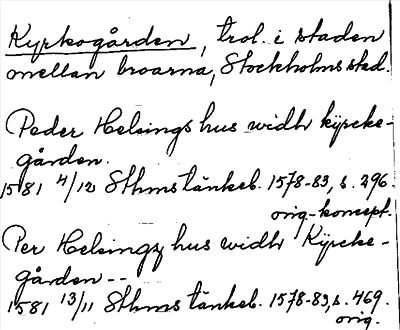 Kyrkogården, trol. i staden
mellan broarna, Stockholms stad.
Peder Helsings hus widh kyrcke-
gården.
1581 4/12 Sthms tänkeb. 1578-83, s. 296.
orig-koncept.
Per Helsingz hus widh Kyrcke-
gården --
1581 13/11 Sthms tänkeb. 1578-83, s. 469.
orig.